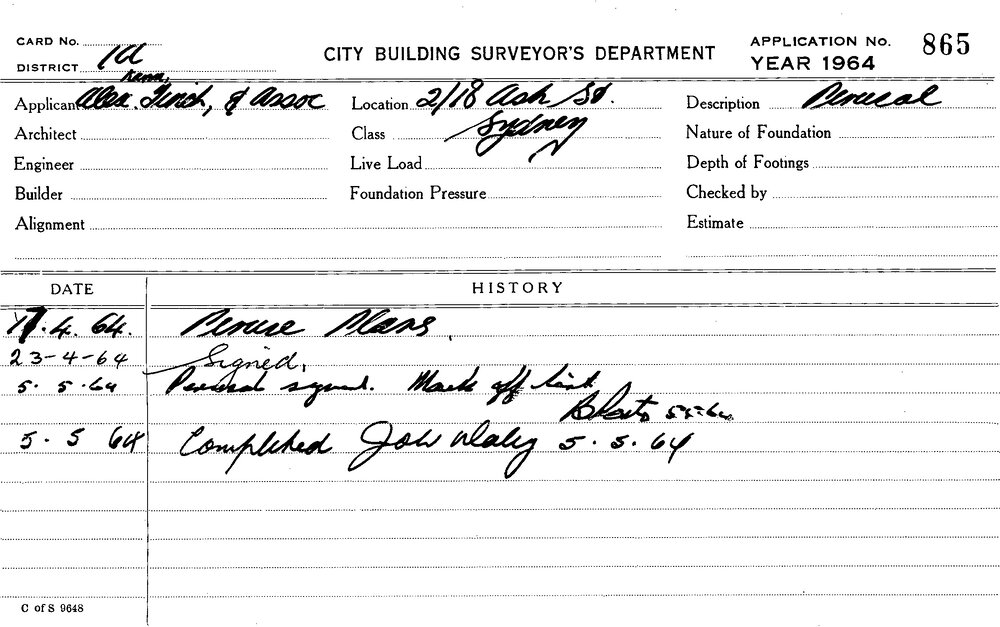 CARD No.
CITY BUILDING SURVEYOR'S DEPARTMENT
APPLICATION No. 865
DISTRICT 1a
YEAR 1964
Applicant Alex. Kann, Finch, & Assoc
Location 2/18 Ash St.
Description Perusal
Architect
Class Sydney
Nature of Foundation
Engineer
Live Load
Depth of Footings
Builder
Foundation Pressure
Checked by
Alignment
Estimate
DATE HISTORY
17.4.64. Peruse Plans.
23-4-64 Signed.
5.5.64 Perusal signed. Mark off list.
5-5-64
5.5 64 Completed 5.5.64
C of S 9648